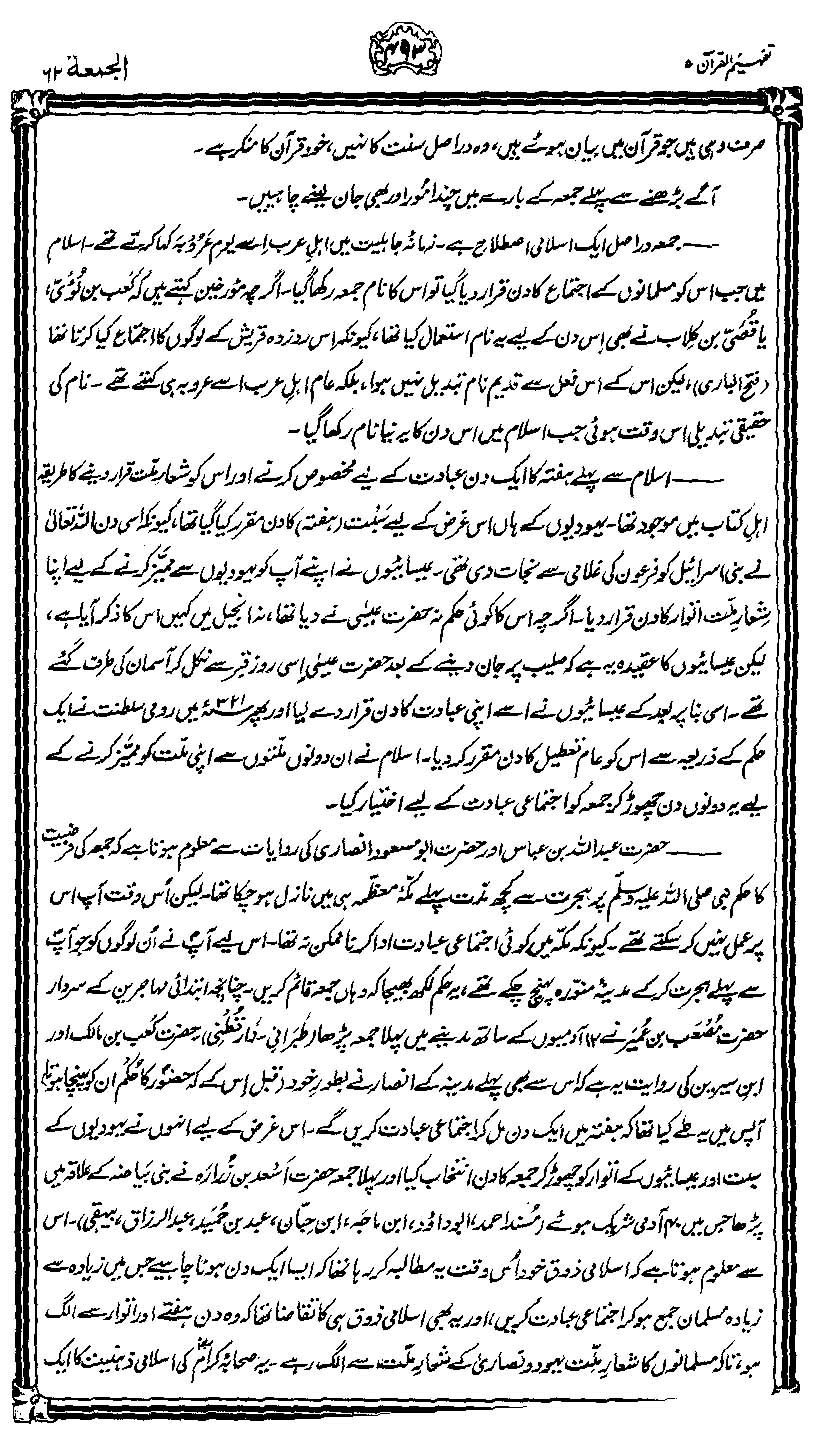 تفہیم القرآن ۵
۴۹۳
الجمعۃ ۶۲
صرف وہی ہیں جو قرآن میں بیان ہوئے ہیں، وہ دراصل سنت کا نہیں، خود قرآن کا منکر ہے۔
آگے بڑھنے سے پہلے جمعہ کے بارے میں چند امور اور بھی جان لینے چاہییں۔
——جمعہ دراصل ایک اسلامی اصطلاح ہے۔ زمانۂ جاہلیت میں اہلِ عرب اسے یوم عَرُوبہ کہا کرتے تھے۔ اسلام
میں جب اس کو مسلمانوں کے اجتماع کا دن قرار دیا گیا تو اس کا نام جمعہ رکھا گیا۔ اگرچہ مؤرخین کہتے ہیں کہ کعب بن لُؤَیّ،
یا قُصَیّ بن کلاب نے بھی اِس دن کے لیے یہ نام استعمال کیا تھا، کیونکہ اس روز وہ قریش کے لوگوں کا اجتماع کیا کرتا تھا
(فتح الباری)، لیکن اس کے اس فعل سے قدیم نام تبدیل نہیں ہوا، بلکہ عام اہلِ عرب اسے عروبہ ہی کہتے تھے۔ نام کی
حقیقی تبدیلی اس وقت ہوئی جب اسلام میں اس دن کا یہ نیا نام رکھا گیا۔
——اسلام سے پہلے ہفتہ کا ایک دن عبادت کے لیے مخصوص کرنے اور اس کو شعارِ ملت قرار دینے کا طریقہ
اہلِ کتاب میں موجود تھا۔ یہودیوں کے ہاں اس غرض کے لیے سَبْت (ہفتہ) کا دن مقرر کیا گیا تھا، کیونکہ اسی دن اللہ تعالیٰ
نے بنی اسرائیل کو فرعون کی غلامی سے نجات دی تھی۔ عیسائیوں نے اپنے آپ کو یہودیوں سے ممیّز کرنے کے لیے اپنا
شعارِ ملّت اتوار کا دن قرار دیا۔ اگرچہ اس کا کوئی حکم نہ حضرت عیسٰی نے دیا تھا، نہ انجیل میں کہیں اس کا ذکر آیا ہے،
لیکن عیسائیوں کا عقیدہ یہ ہے کہ صلیب پر جان دینے کے بعد حضرت عیسٰی اِسی روز قبر سے نکل کر آسمان کی طرف گئے
تھے۔ اسی بنا پر بعد کے عیسائیوں نے اسے اپنی عبادت کا دن قرار دے لیا اور پھر ۳۲۱ء میں رومی سلطنت نے ایک
حکم کے ذریعہ سے اس کو عام تعطیل کا دن مقرر کر دیا۔ اسلام نے ان دونوں ملّتوں سے اپنی ملّت کو ممیّز کرنے کے
لیے یہ دونوں دن چھوڑ کر جمعہ کو اجتماعی عبادت کے لیے اختیار کیا۔
——حضرت عبداللہ بن عباس اور حضرت ابو مسعود انصاری کی روایات سے معلوم ہوتا ہے کہ جمعہ کی فرضیت
کا حکم نبی صلی اللہ علیہ وسلم پر ہجرت سے کچھ مدّت پہلے مکّۂ معظّمہ ہی میں نازل ہو چکا تھا۔ لیکن اُس وقت آپ اس
پر عمل نہیں کر سکتے تھے۔ کیونکہ مکّہ میں کوئی اجتماعی عبادت ادا کرنا ممکن نہ تھا۔ اس لیے آپؐ نے اُن لوگوں کو جو آپؐ
سے پہلے ہجرت کر کے مدینۂ منوّرہ پہنچ چکے تھے، یہ حکم لکھ بھیجا کہ وہاں جمعہ قائم کریں۔ چنانچہ ابتدائی مہاجرین کے سردار
حضرت مُصْعَب بن عُمَیر نے ۱۲ آدمیوں کے ساتھ مدینے میں پہلا جمعہ پڑھا (طَبَرانی۔ دارقُطنی) حضرت کعب بن مالک اور
ابن سیرین کی روایت یہ ہے کہ اس سے بھی پہلے مدینہ کے انصار نے بطورِ خود (قبل اِس کے کہ حضورؐ کا حُکم ان کو پہنچا ہوتا)
آپس میں یہ طے کیا تھا کہ ہفتہ میں ایک دن مل کر اجتماعی عبادت کریں گے۔ اس غرض کے لیے انہوں نے یہودیوں کے
سبت اور عیسائیوں کے اتوار کو چھوڑ کر جمعہ کا دن انتخاب کیا اور پہلا جمعہ حضرت اَسْعَد بن زُرارہ نے بنی بیاضہ کے علاقہ میں
پڑھا جس میں ۴۰ آدمی شریک ہوئے (مُسند احمد، ابوداؤد، ابن ماجہ، ابن حِبّان، عبد بن حُمَید، عبدالرزاق، بیہقی)۔ اس
سے معلوم ہوتا ہے کہ اسلامی ذوق خود اُس وقت یہ مطالبہ کر رہا تھا کہ ایسا ایک دن ہونا چاہیے جس میں زیادہ سے
زیادہ مسلمان جمع ہو کر اجتماعی عبادت کریں، اور یہ بھی اسلامی ذوق ہی کا تقاضا تھا کہ وہ دن ہفتے اور اتوار سے الگ
ہو، تاکہ مسلمانوں کا شعارِ ملّت یہود و نصاریٰ کے شعارِ ملّت سے الگ رہے۔ یہ صحابۂ کرامؓ کی اسلامی ذہنیت کا ایک